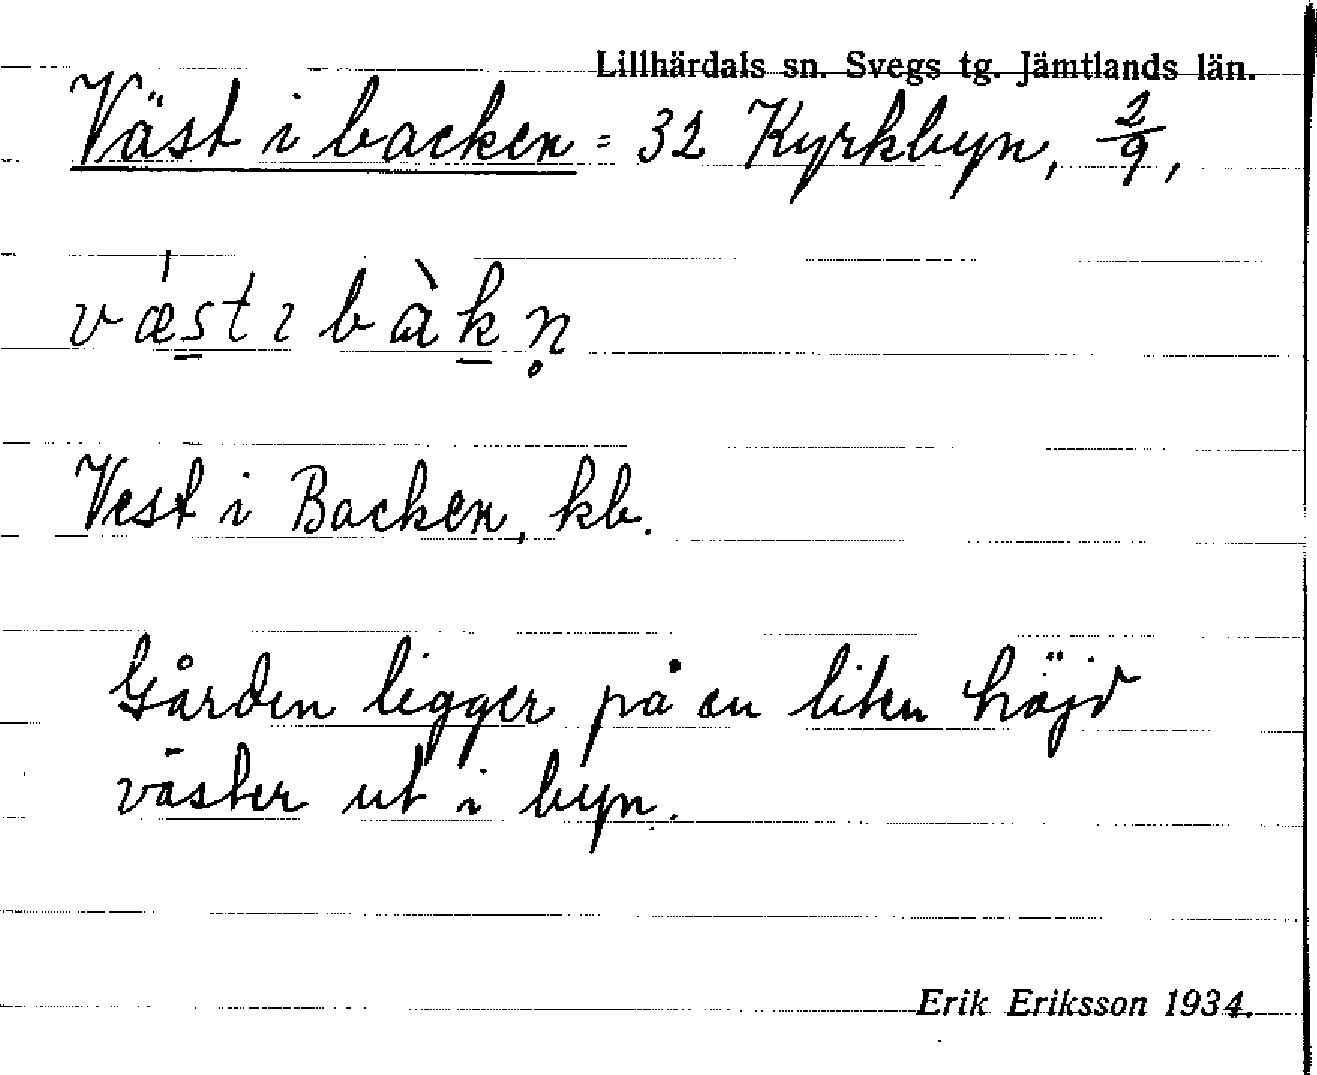 Lillhärdals sn. Svegs tg. Jämtlands län.
Väst i backen = 32 Kyrkbyn, 2/9,
vǽs̲t ɩ bàk̲n̥
Vest i Backen, kb.
Gården ligger på en liten höjd
väster ut i byn.
Erik Eriksson 1934.